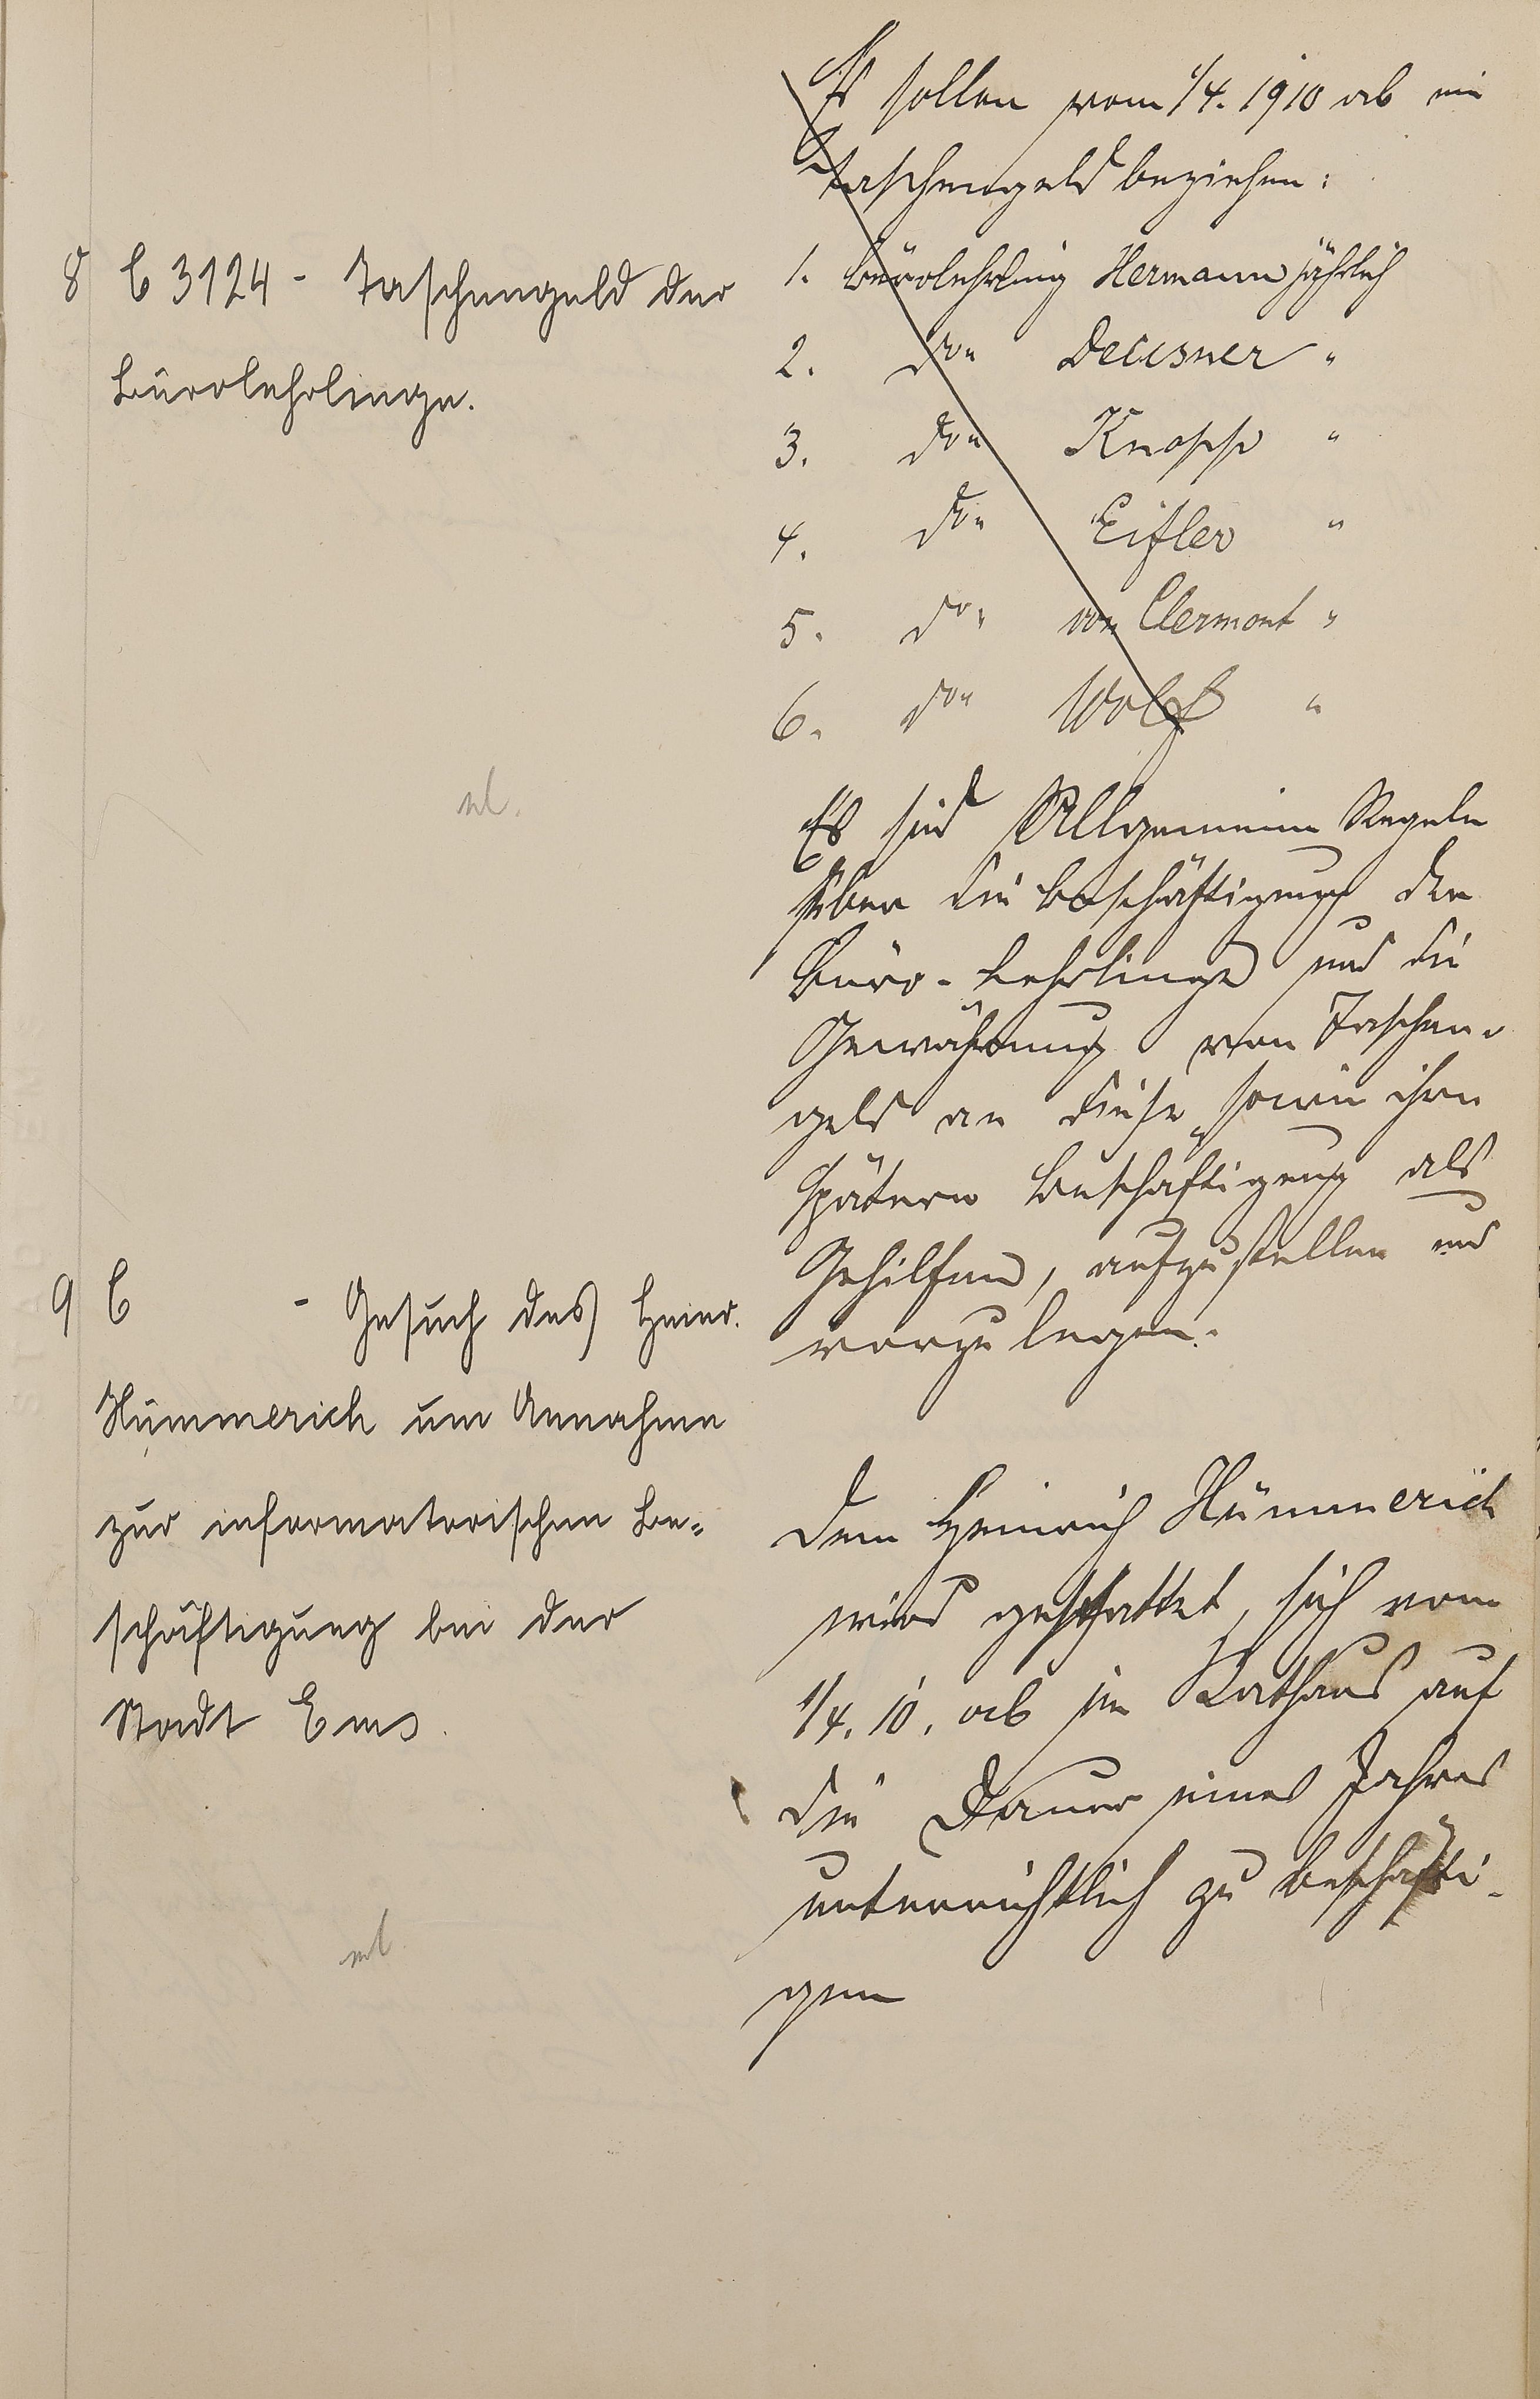 8 C 3124 - Taschengeld der
Bürolehrlinge.
Es sollen vom 1/4. 1910 ab ein
Taschengeld beziehen:
1. Bürolehrling Hermann jährlich
2. do" Deusner "
3. do" Knopp "
4. do" Eifler "
5. do" von Clermont "
6. do" Wolf "
Es sind Allgemeine Regeln
über die Beschäftigung der
Büro-Lehrlinge und die
Gewährung von Taschen-
geld an diese, sowie ihre
spätere Beschäftigung als
Gehilfen, aufzustellen und
vorzulegen.
9 C - Gesuch des Heinr.
Hümmerich um Annahme
zur informatorischen Be-
schäftigung bei der
Stadt Ems.
Dem Heinrich Hümmerich
wird gestattet, sich vom
1/4. 10. ab im Rathaus auf
die Dauer eines Jahres
unterrichtlich zu beschäfti-
gen